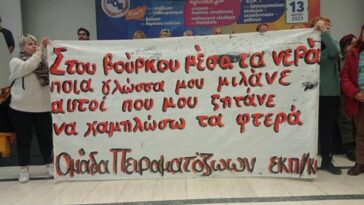 13
Στου βούρκου μέσα τα νερά
ποια γλώσσα μου μιλάνε
αυτοί που μου ζητάνε
να χαμηλώσω τα φτερά
Ομάδα Πειραματόζωων εκπ/κ